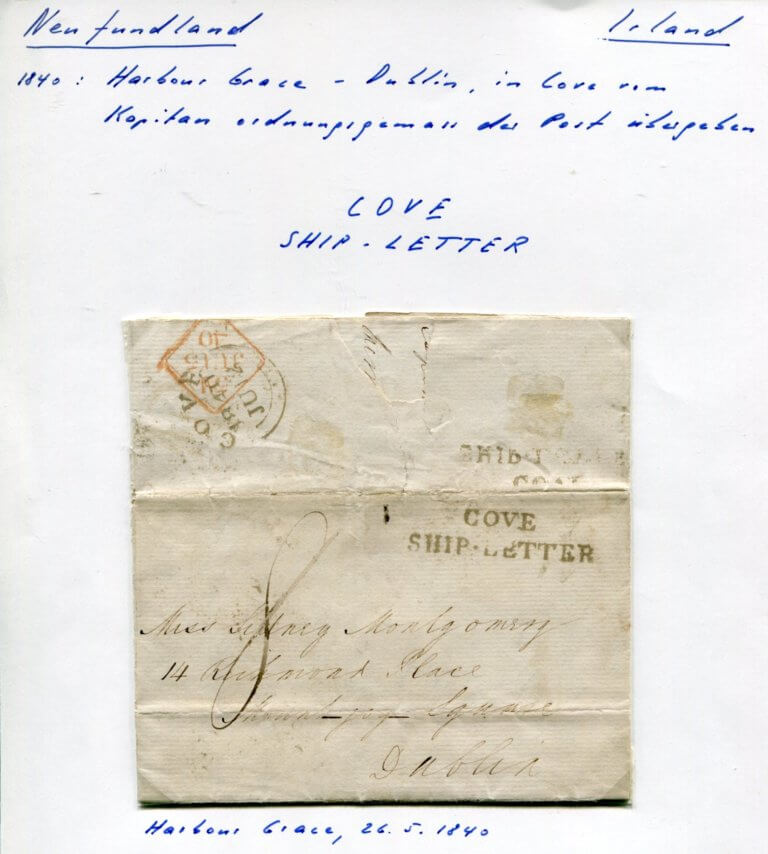 Neufundland Irland
1840: Harbour Grace - Dublin, in Cove vom
Kapitän ordnungsgemäss der Post übergeben
COVE
SHIP-LETTER
40
JU
CORK
JU
1840
SHIP
COVE
SHIP-LETTER
8
Miss Sidney Montgomery
14 Richmond Place
Mountjoy Square
Dublin
Harbour Grace, 26.5.1840